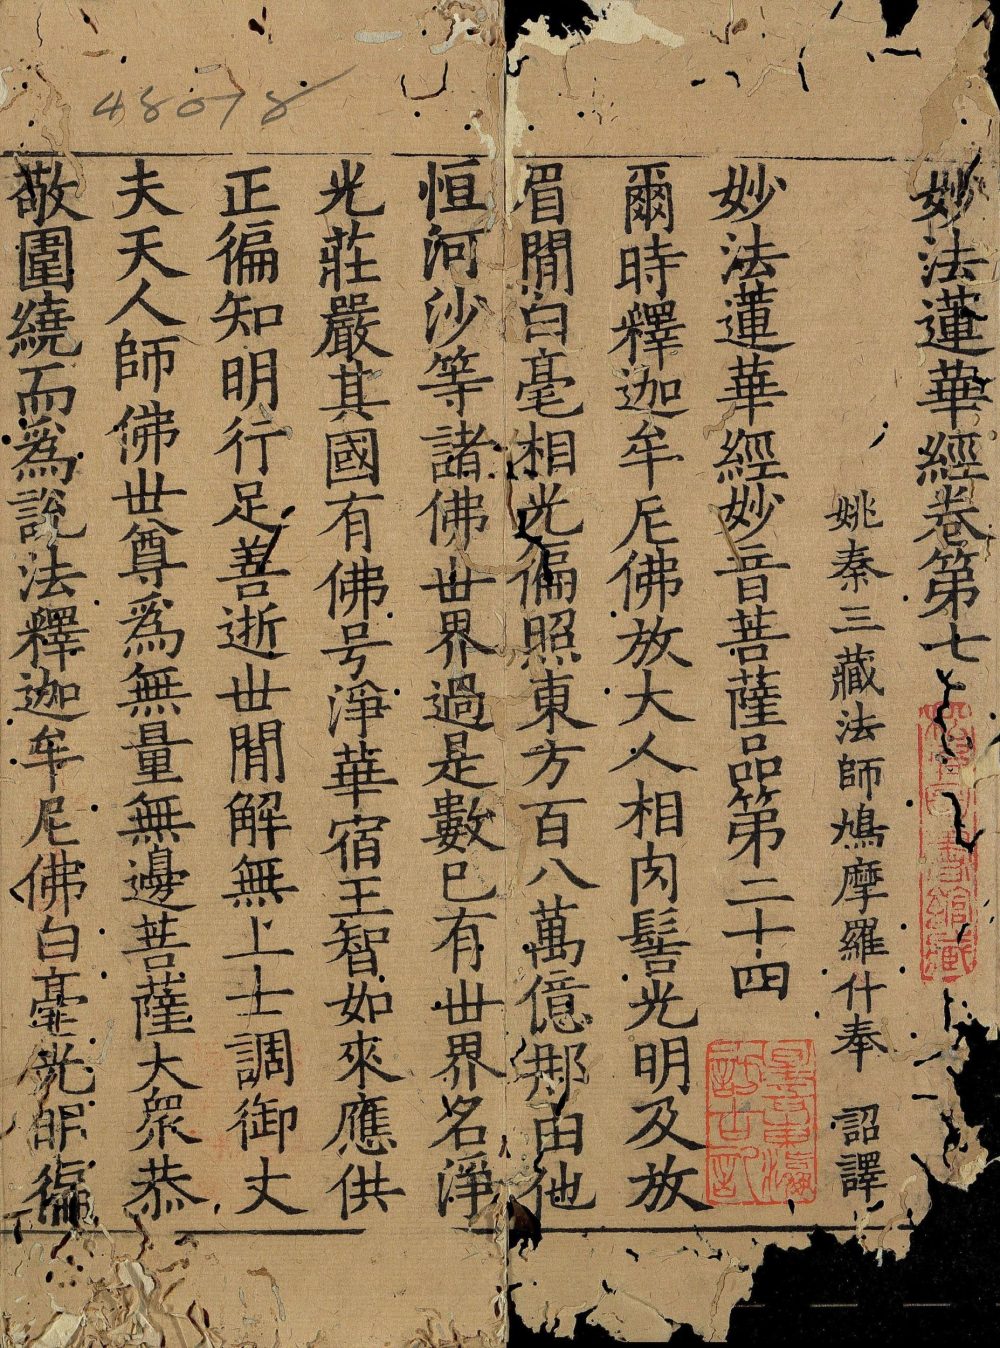 妙法蓮華經卷第七
姚秦三藏法師鳩摩羅什奉 詔譯
妙法蓮華經妙音菩薩品第二十四
爾時釋迦牟尼佛放大人相肉髻光明及放
眉閒白毫相光徧照東方百八萬億那由他
恒河沙等諸佛世界過是數已有世界名淨
光莊嚴其國有佛号淨華宿王智如來應供
正徧知明行足善逝世閒解無上士調御丈
夫天人師佛世尊爲無量無邊菩薩大衆恭
敬圍繞而爲說法釋迦牟尼佛白毫光明徧
48078